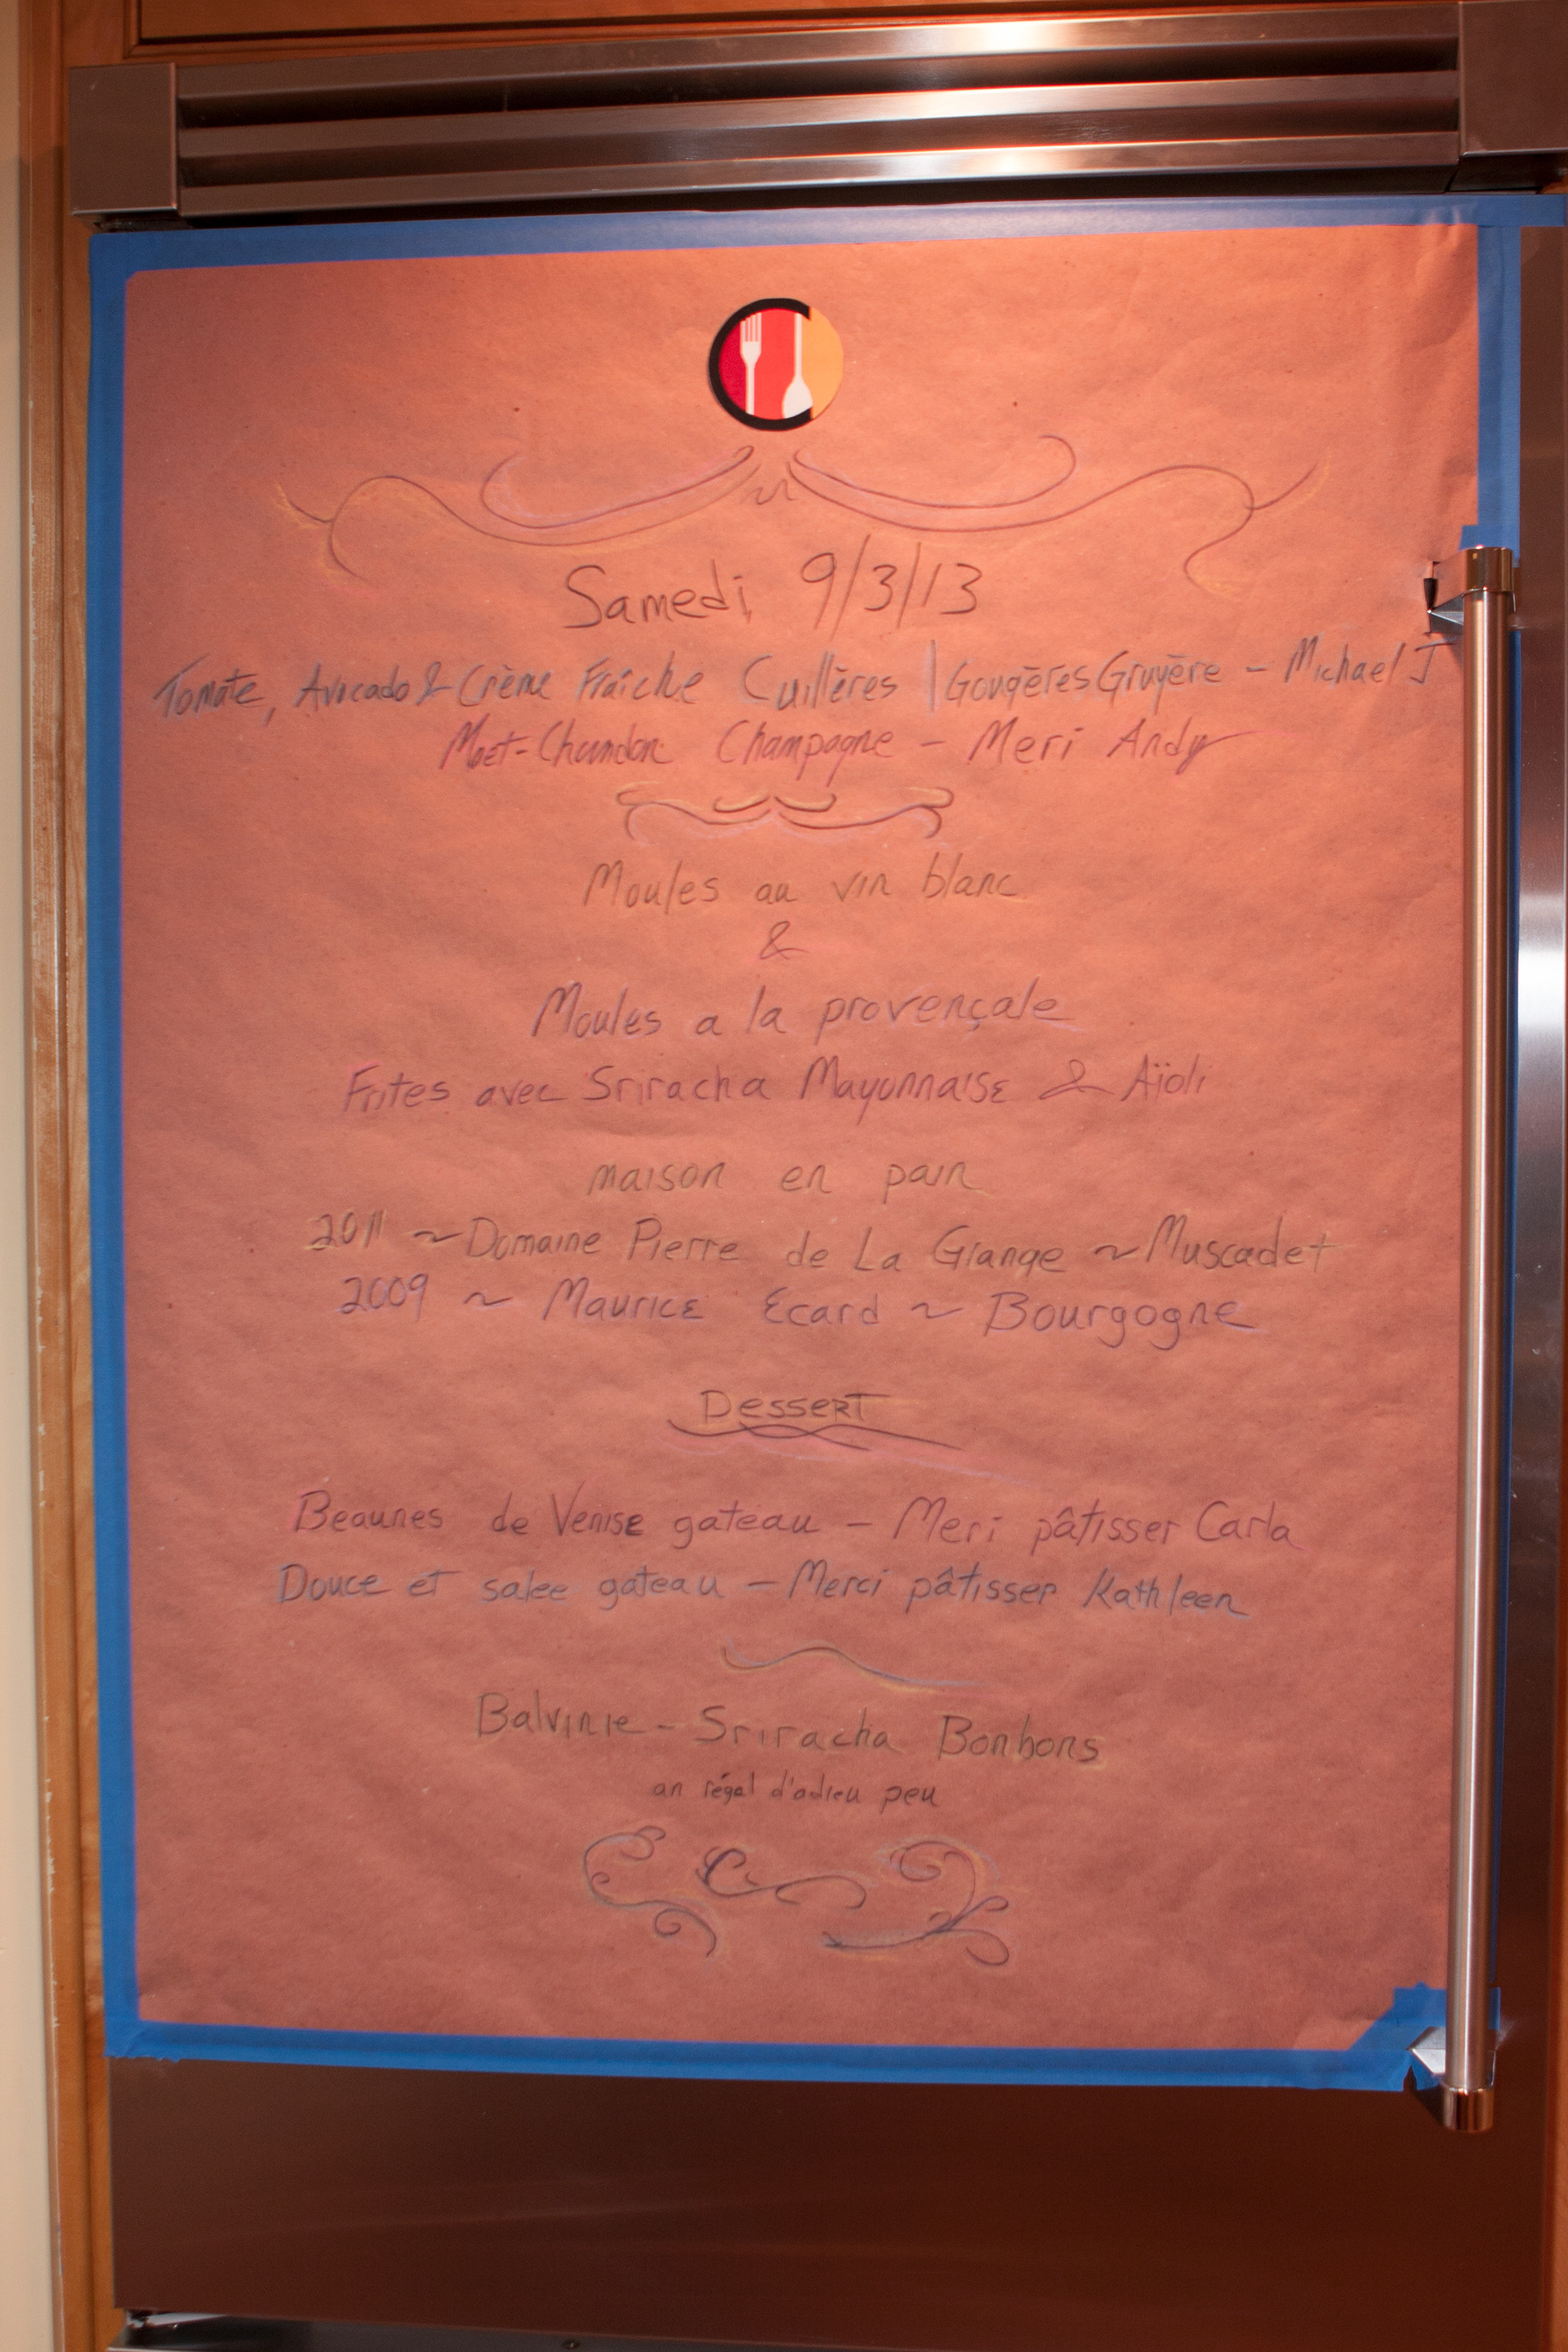 Samedi, 9/3/13
Tomate, Avocado & Crème Fraîche Cuillères | Gougères Gruyère - Michael J
Moet-Chandon Champagne - Meri Andy
Moules au vin blanc
&
Moules a la provençale
Frites avec Sriracha Mayonnaise & Aïoli
maison en pain
2011 ~ Domaine Pierre de La Grange ~ Muscadet
2009 ~ Maurice Ecard ~ Bourgogne
Dessert
Beaunes de Venise gateau - Meri pâtisser Carla
Douce et salee gateau - Merci pâtisser Kathleen
Balvinie - Sriracha Bonbons
an régal d'adieu peu